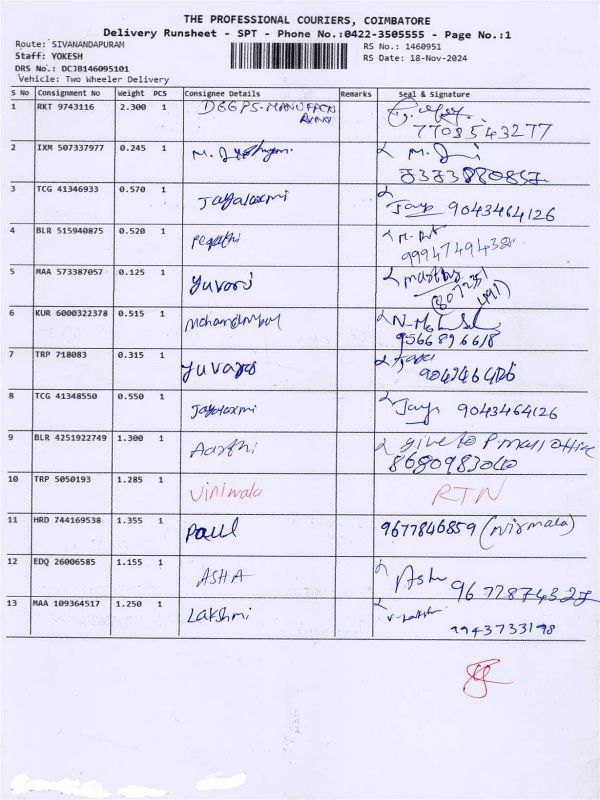 THE PROFESSIONAL COURIERS, COIMBATORE
Delivery Runsheet - SPT - Phone No.:0422-3505555 - Page No.:1
Route: SIVANANDAPURAM RS No.: 1460951
Staff: YOKESH RS Date: 18-Nov-2024
DRS No.: DCJB146095101
Vehicle: Two Wheeler Delivery
S No Consignment No Weight PCS Consignee Details Remarks Seal & Signature
1 RKT 9743116 2.300 1
7708543277
2 IXM 507337977 0.245 1
3 TCG 41346933 0.570 1 Jayalaxmi Jaya 9043464126
4 BLR 515940875 0.520 1
9994749432
5 MAA 573387057 0.125 1
6 KUR 6000322378 0.515 1
9566896618
7 TRP 718083 0.315 1
8 TCG 41348550 0.550 1 Jayalaxmi Jaya 9043464126
9 BLR 4251922749 1.300 1 Aarthi give to
10 TRP 5050193 1.285 1 RTN
11 HRD 744169538 1.355 1 Paul 9677846859 (Nirmala)
12 EDQ 26006585 1.155 1 ASHA Asha
13 MAA 109364517 1.250 1 Lakshmi
9943733198